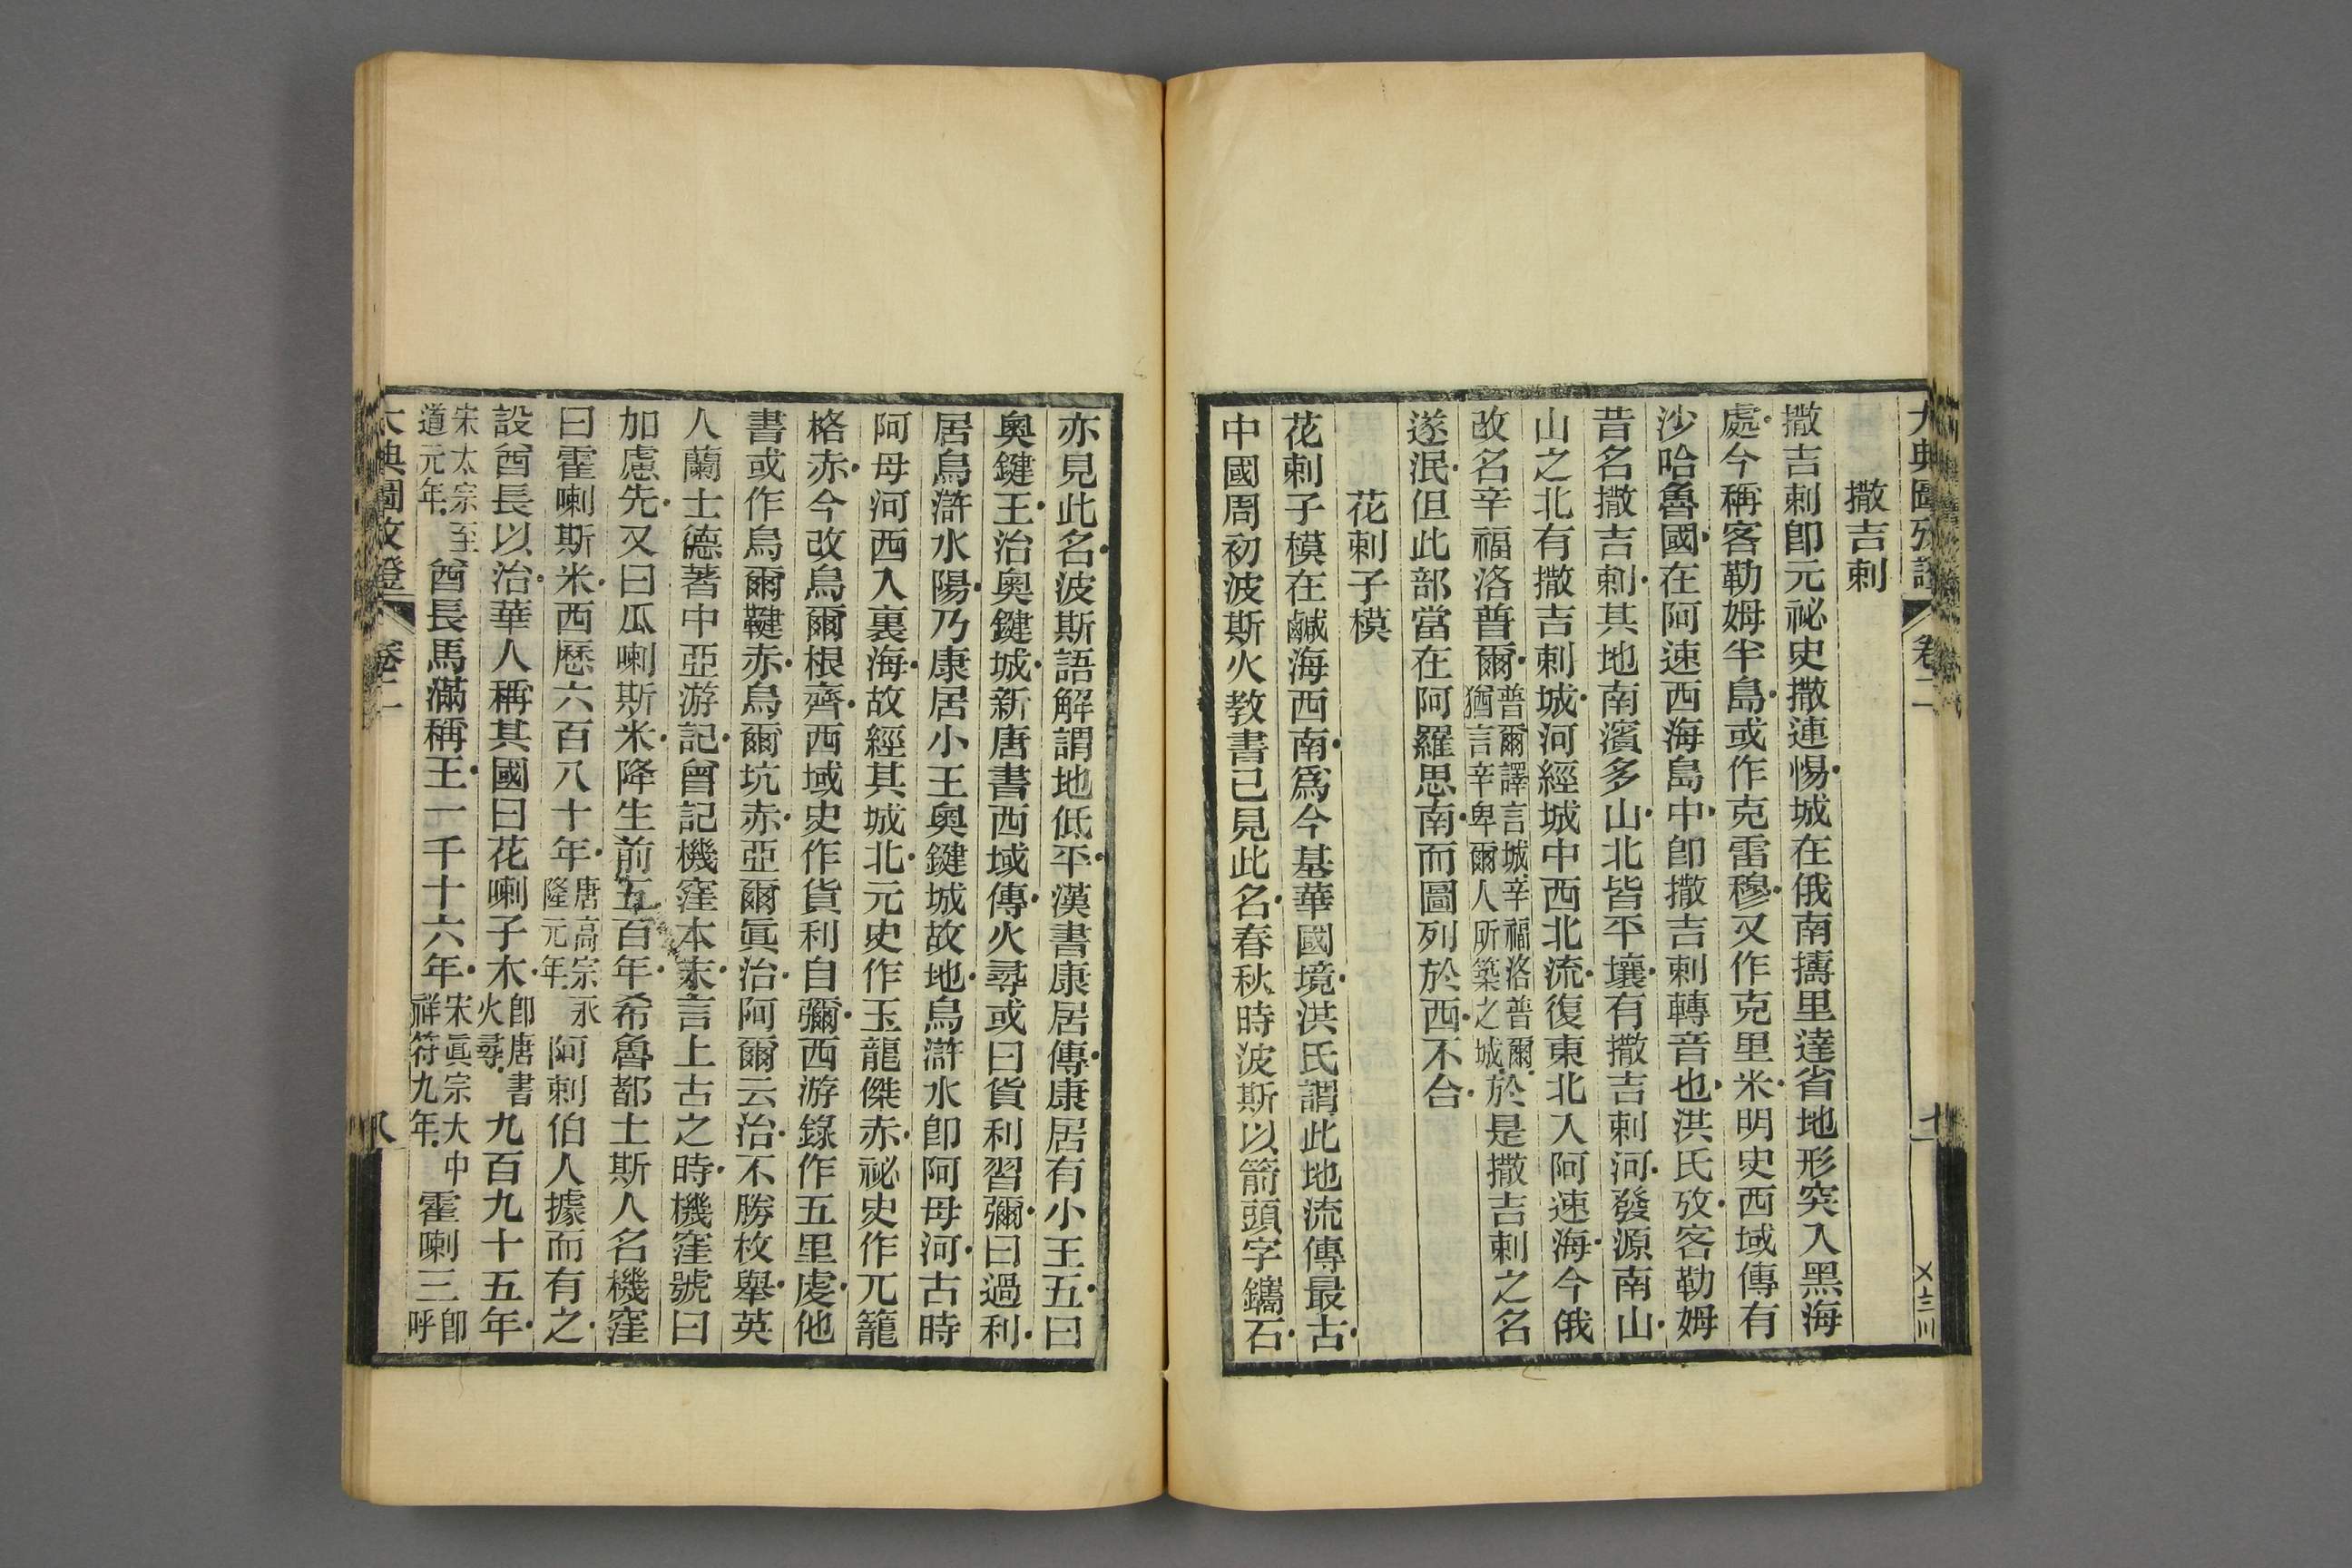 大典圖攷證 卷二
撒吉剌
撒吉剌卽元祕史撒連惕城在俄南擣里達省地形突入黑海
處今稱客勒姆半島或作克雷穆又作克里米明史西域傳有
沙哈魯國在阿速西海島中卽撒吉剌轉音也洪氏攷客勒姆
昔名撒吉剌其地南濱多山北皆平壤有撒吉剌河發源南山
山之北有撒吉剌城河經城中西北流復東北入阿速海今俄
改名辛福洛普爾普爾譯言城辛福洛普爾猶言辛卑爾人所築之城於是撒吉剌之名
遂泯但此部當在阿羅思南而圖列於西不合
花剌子模
花剌子模在鹹海西南爲今基華國境洪氏謂此地流傳最古
中國周初波斯火教書已見此名春秋時波斯以箭頭字鑴石
亦見此名波斯語解謂地低平漢書康居傳康居有小王五曰
奧鍵王治奧鍵城新唐書西域傳火尋或曰貨利習彌曰過利
居烏滸水陽乃康居小王奧鍵城故地烏滸水卽阿母河古時
阿母河西入裏海故經其城北元史作玉龍傑赤祕史作兀籠
格赤今改烏爾根齊西域史作貨利自彌西游錄作五里虔他
書或作烏爾鞬赤烏爾坑赤亞爾眞治阿爾云治不勝枚舉英
人蘭士德著中亞游記曾記機窪本末言上古之時機窪號曰
加慮先又曰瓜喇斯米降生前五百年希魯都士斯人名機窪
曰霍喇斯米西歷六百八十年唐高宗永隆元年阿剌伯人據而有之
設酋長以治華人稱其國曰花喇子木卽唐書火尋九百九十五年
宋太宗至道元年酋長馬滿稱王一千十六年宋眞宗大中祥符九年霍喇三卽呼
大典圖攷證 卷二